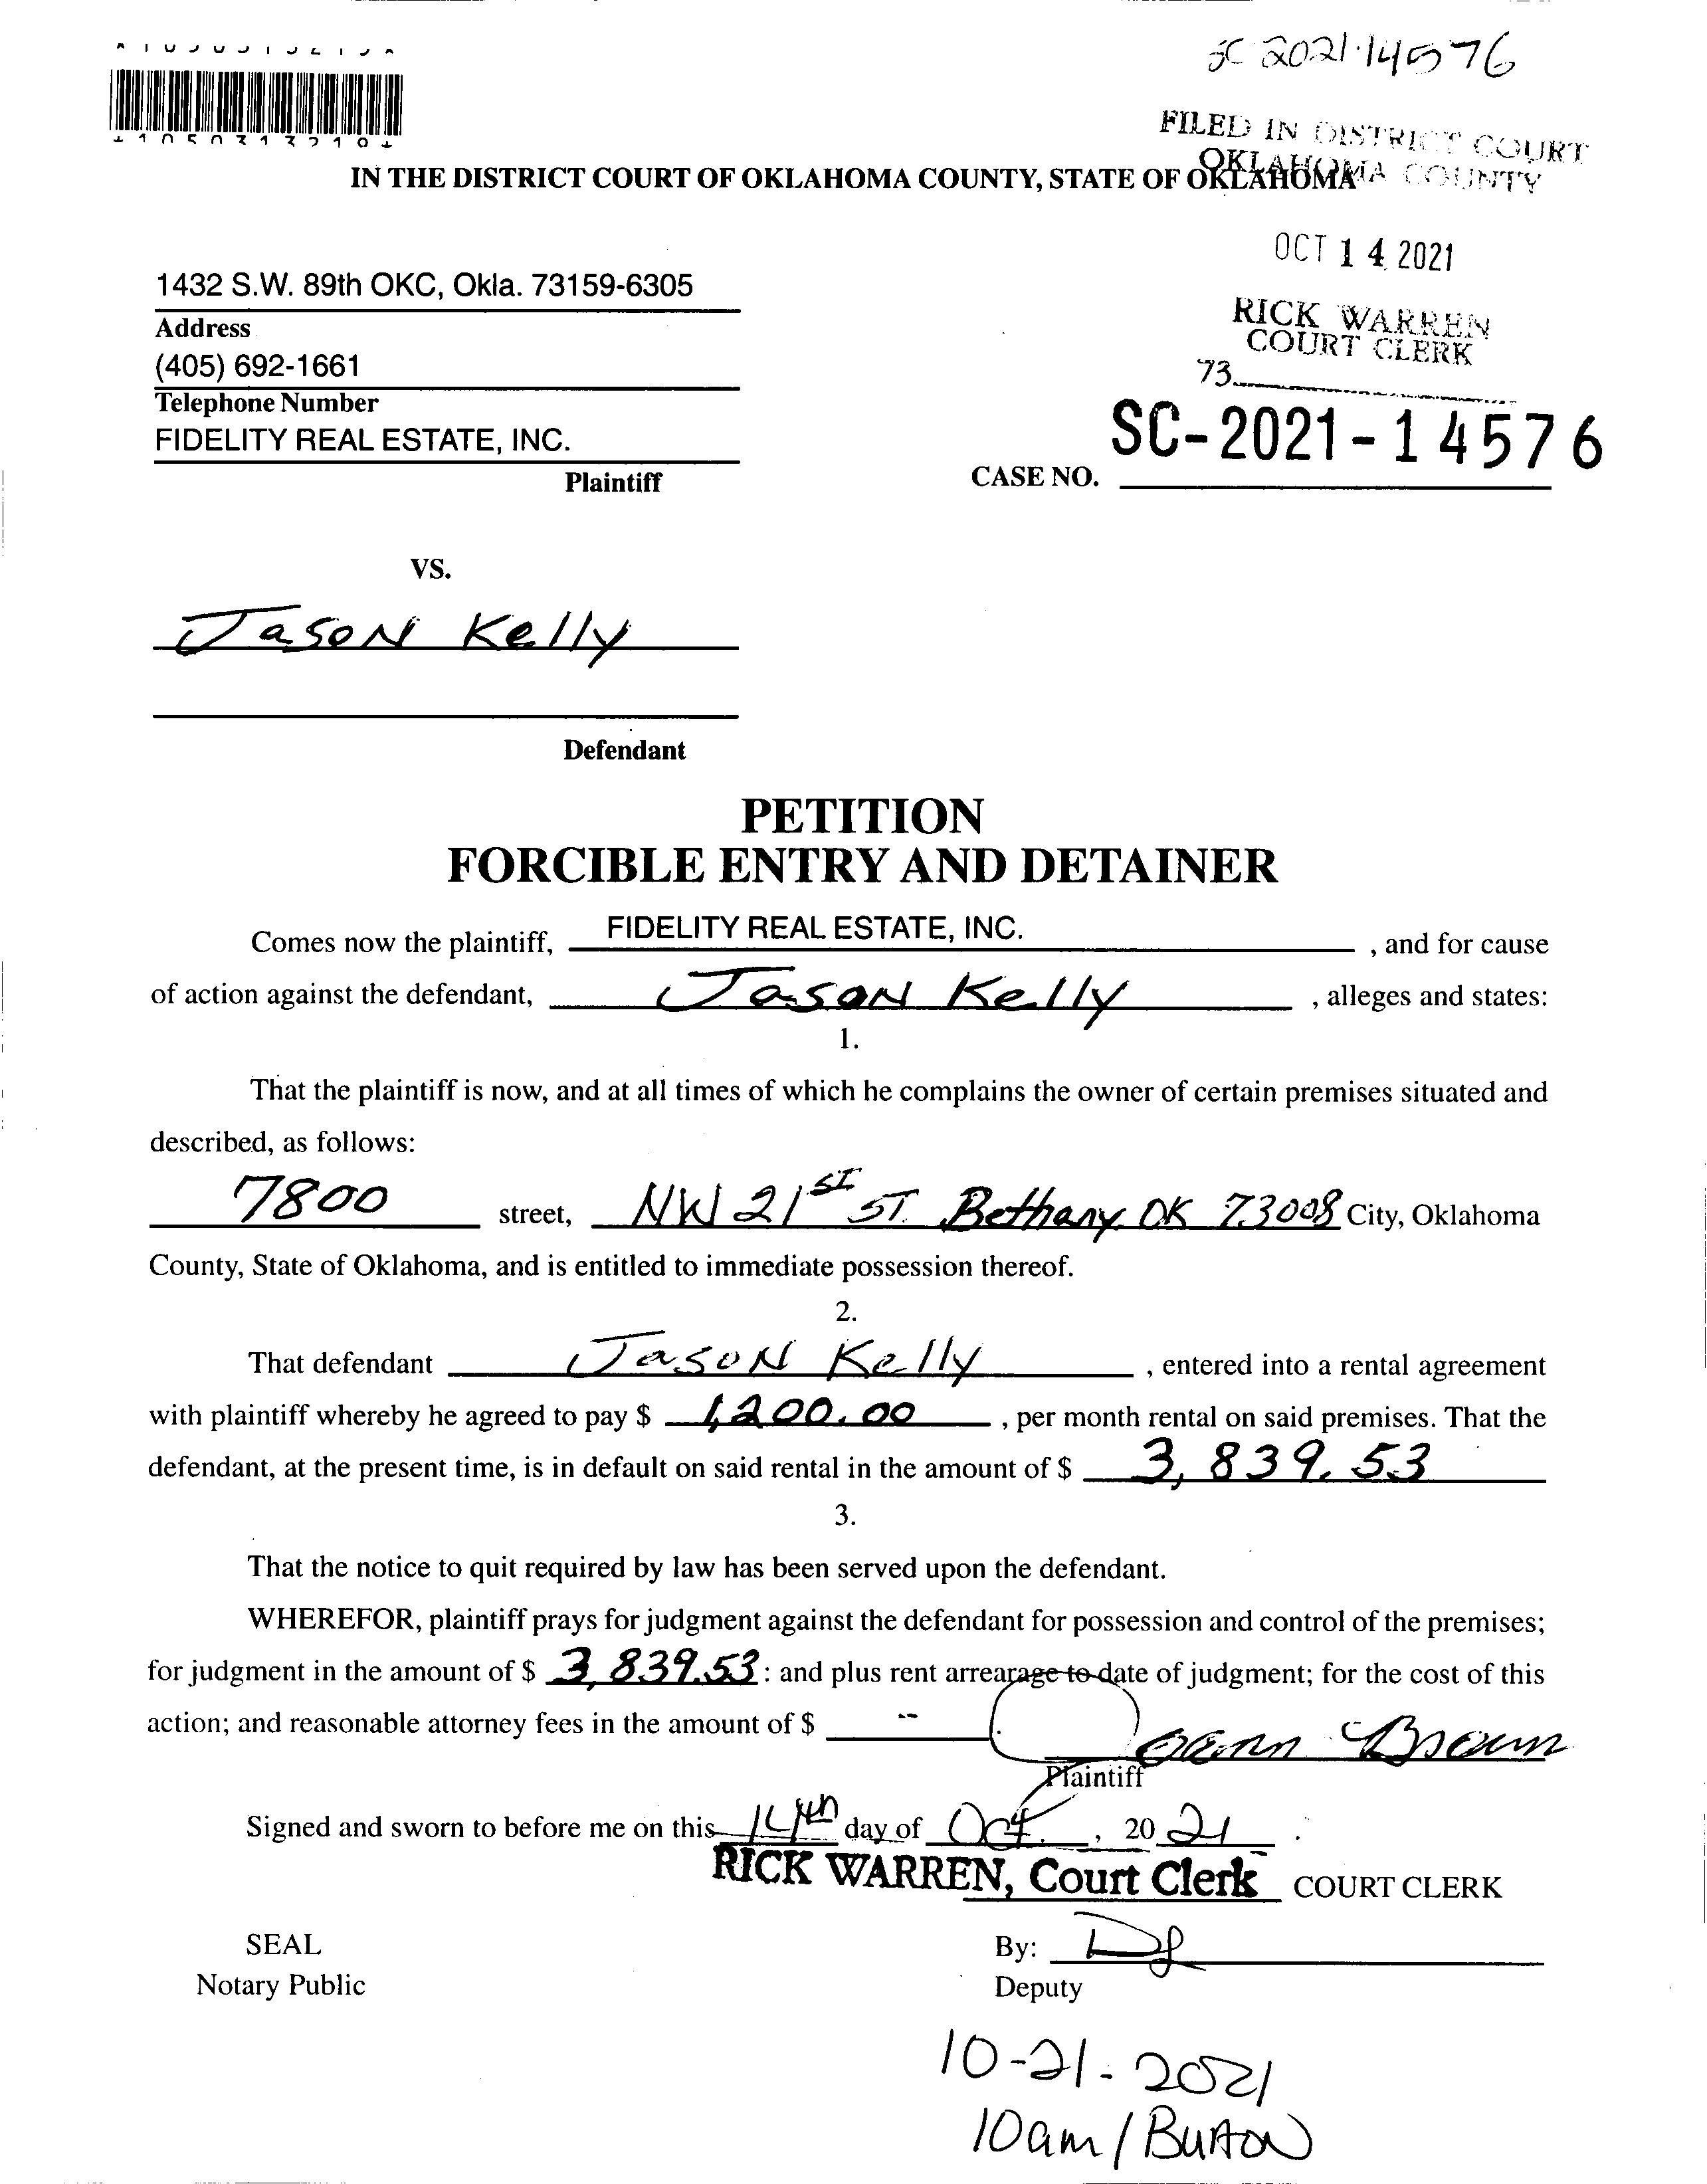 SC 2021-14576
FILED IN DISTRICT COURT
OKLAHOMA COUNTY
IN THE DISTRICT COURT OF OKLAHOMA COUNTY, STATE OF OKLAHOMA
OCT 14 2021
1432 S.W. 89th OKC, Okla. 73159-6305
Address
RICK WARREN
COURT CLERK
(405) 692-1661
73
Telephone Number
FIDELITY REAL ESTATE, INC.
Plaintiff
CASE NO. SC-2021-14576
VS.
Jason Kelly
Defendant
PETITION
FORCIBLE ENTRY AND DETAINER
Comes now the plaintiff, FIDELITY REAL ESTATE, INC. , and for cause
of action against the defendant, Jason Kelly , alleges and states:
1.
That the plaintiff is now, and at all times of which he complains the owner of certain premises situated and
described, as follows:
7800 street, NW 21ST ST. Bethany. OK 73008 City, Oklahoma
County, State of Oklahoma, and is entitled to immediate possession thereof.
2.
That defendant Jason Kelly , entered into a rental agreement
with plaintiff whereby he agreed to pay $ 1,200.00 , per month rental on said premises. That the
defendant, at the present time, is in default on said rental in the amount of $ 3,839.53
3.
That the notice to quit required by law has been served upon the defendant.
WHEREFOR, plaintiff prays for judgment against the defendant for possession and control of the premises;
for judgment in the amount of $ 3,839.53 : and plus rent arrearage to date of judgment; for the cost of this
action; and reasonable attorney fees in the amount of $ -- .
Joann Brown
Plaintiff
Signed and sworn to before me on this 14th day of Oct. , 20 21 .
RICK WARREN, Court Clerk COURT CLERK
SEAL
By:
Notary Public
Deputy
10-21-2021
10am / Burton